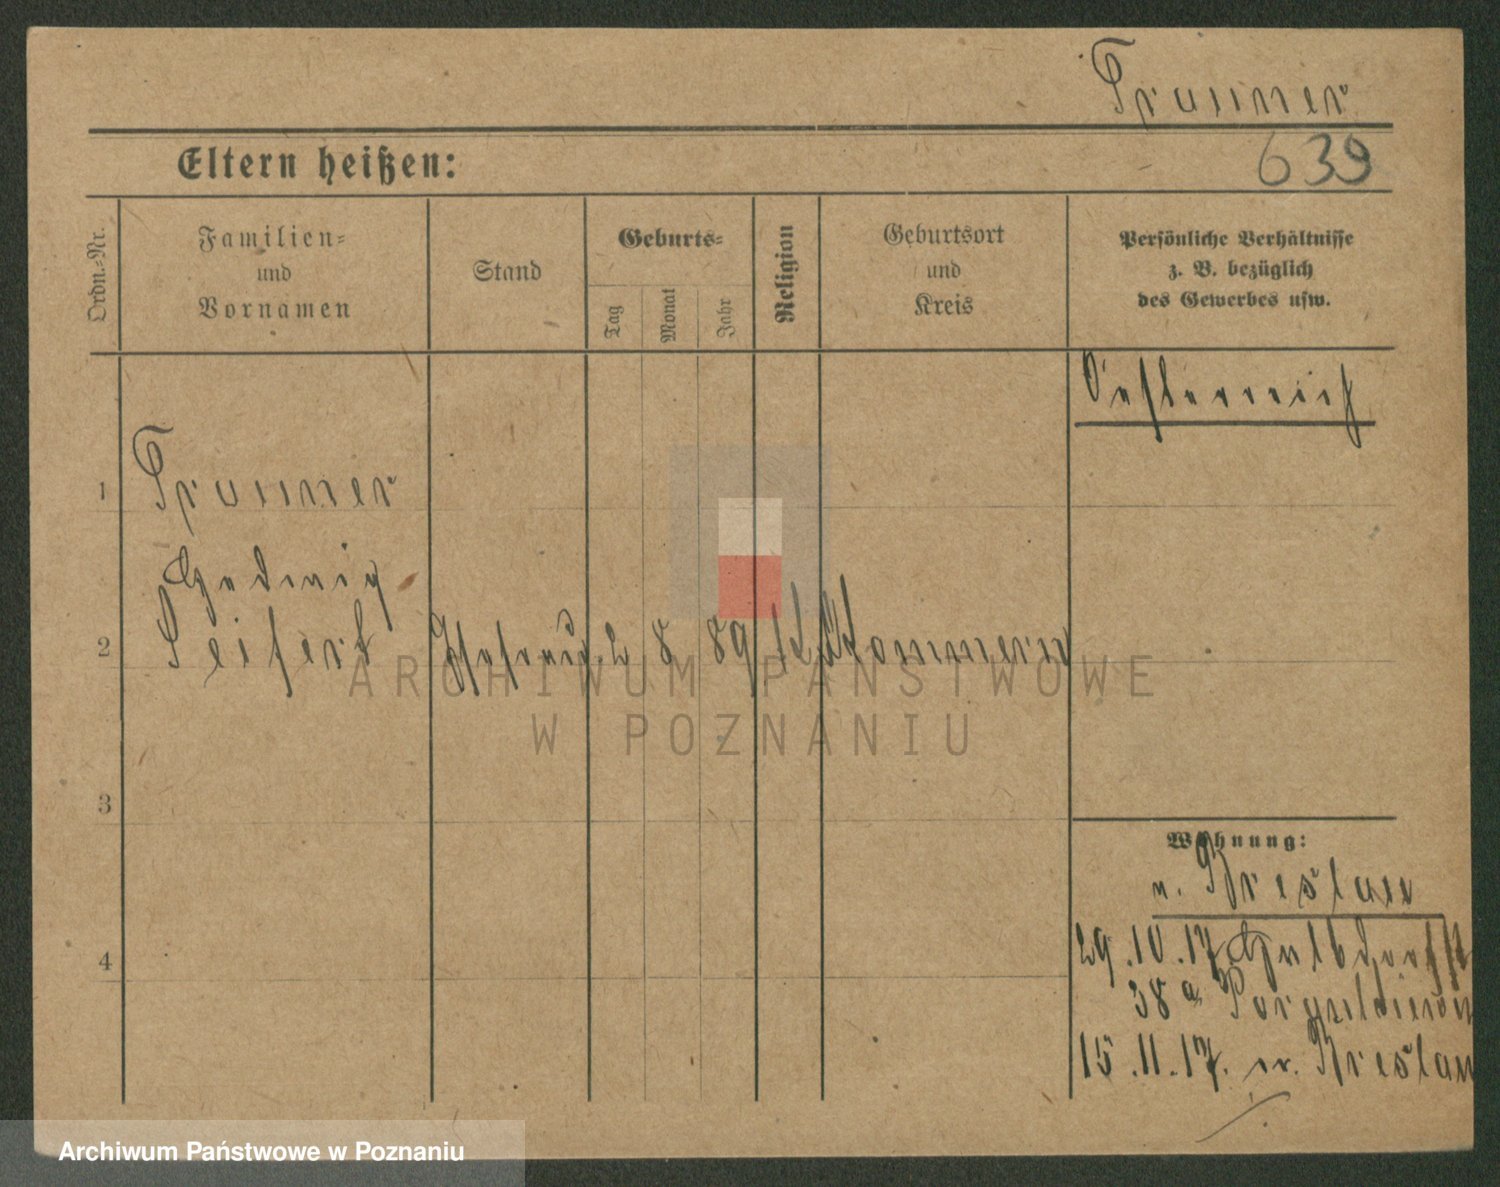 639
Eltern heißen:
Ordn.-Nr.
Familien-
und
Vornamen
Stand
Geburts-
Tag
Monat
Jahr
Religion
Geburtsort
und
Kreis
Persönliche Verhältnisse
z. B. bezüglich
des Gewerbes usw.
Oesterreich
1
Hedwig
2 Seifert Ehefrau 2 8 89 k. Pommern
3
Wohnung:
n. Breslau
29.10.17
4
38a
15.11.17. n. Breslau
ARCHIWUM PAŃSTWOWE
W POZNANIU
Archiwum Państwowe w Poznaniu